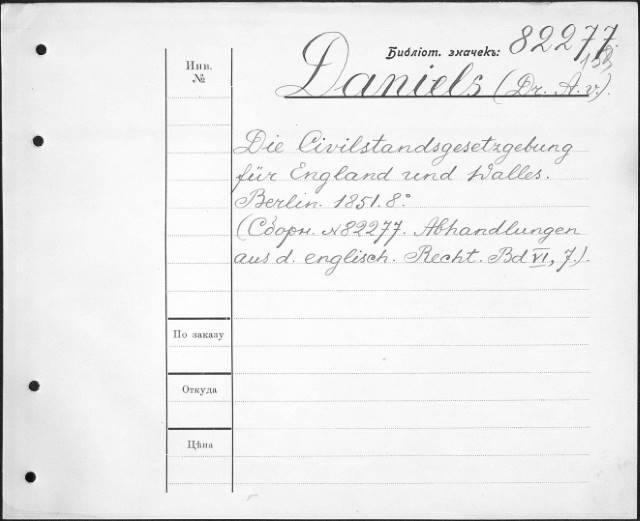 Библіот. значекъ: 82277.
153
Инв.
№
Daniels (Dr. A. v.).
Die Civilstandsgesetzgebung
für England und Walles.
Berlin. 1851. 8°
(Сборн. №82277. Abhandlungen
aus d. englisch. Recht. Bd VI, 7.).
По заказу
Откуда
Цѣна